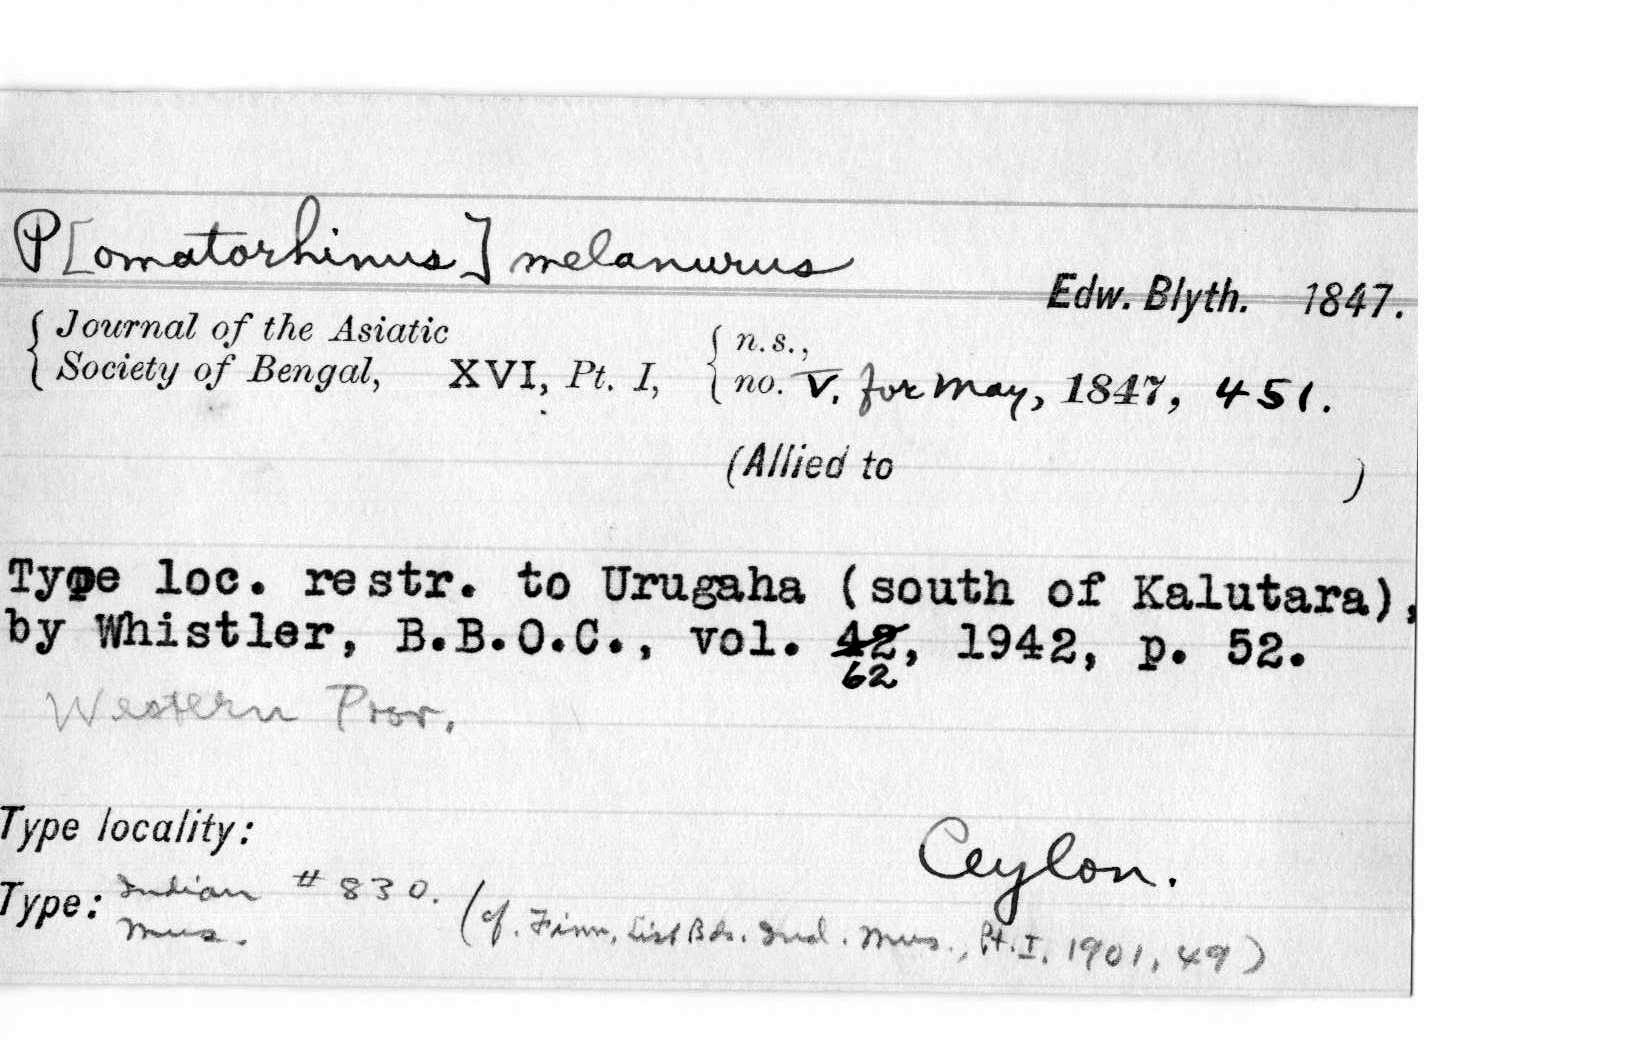 P[omatorhinus] melanurus
Edw. Blyth. 1847.
Journal of the Asiatic
Society of Bengal, XVI, Pt. I, n.s.,
no. V. for May, 1847, 451.
(Allied to )
Type loc. restr. to Urugaha (south of Kalutara),
by Whistler, B.B.O.C., vol. 42, 1942, p. 52.
62
Western Prov.
Type locality: Ceylon.
Type: Indian Mus. # 830. (cf. Finn, List Bds. Ind. Mus., Pt. I, 1901, 49)